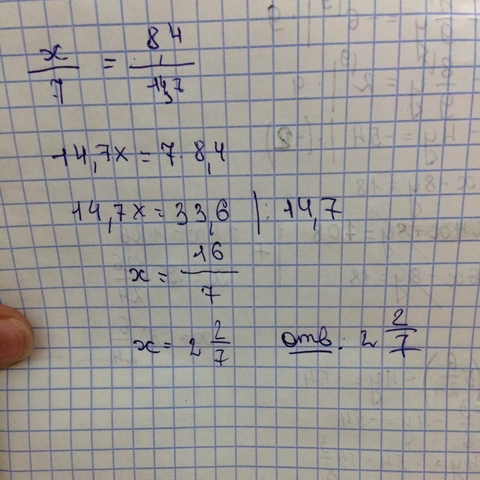 x/7 = 8,4/14,7
14,7x = 7 · 8,4
14,7x = 33,6 | : 14,7
x = 16/7
x = 2 2/7 отв: 2 2/7